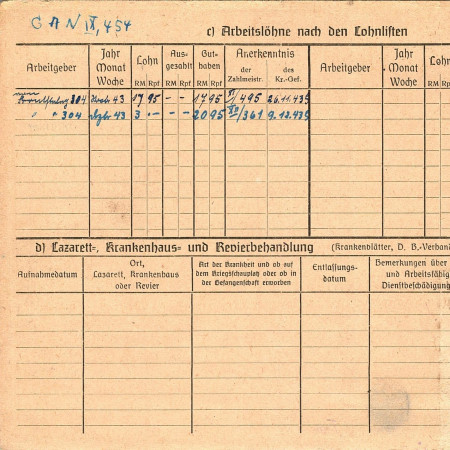 G A N IX, 454
c) Arbeitslöhne nach den Lohnlisten
Arbeitgeber
Jahr Monat Woche
Lohn
RM Rpf
Aus-gezahlt
RM Rpf
Gut-haben
RM Rpf
Anerkenntnis
der Zahlmeistr.
des Kr.-Gef.
Arbeitgeber
Jahr Monat Woche
Lohn
RM Rpf
304 43 17 95 - - 17 95 XI/495 26.11.43
" " 304 43 3 - - - 20 95 XII/361 9.12.43
d) Lazarett-, Krankenhaus- und Revierbehandlung (Krankenblätter, D. B.-Verband
Aufnahmedatum
Ort, Lazarett, Krankenhaus oder Revier
Art der Krankheit und ob auf dem Kriegsschauplatz oder ob in der Gefangenschaft erworben
Entlassungs-datum
Bemerkungen über und Arbeitsfähig Dienstbeschädigung